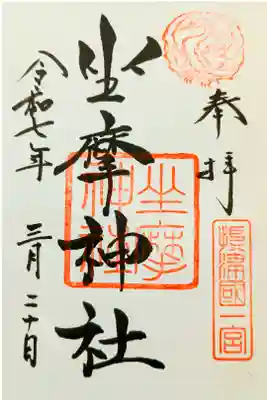 奉拝
摂津國一宮
坐摩神社
坐摩神社
令和七年
三月二十日